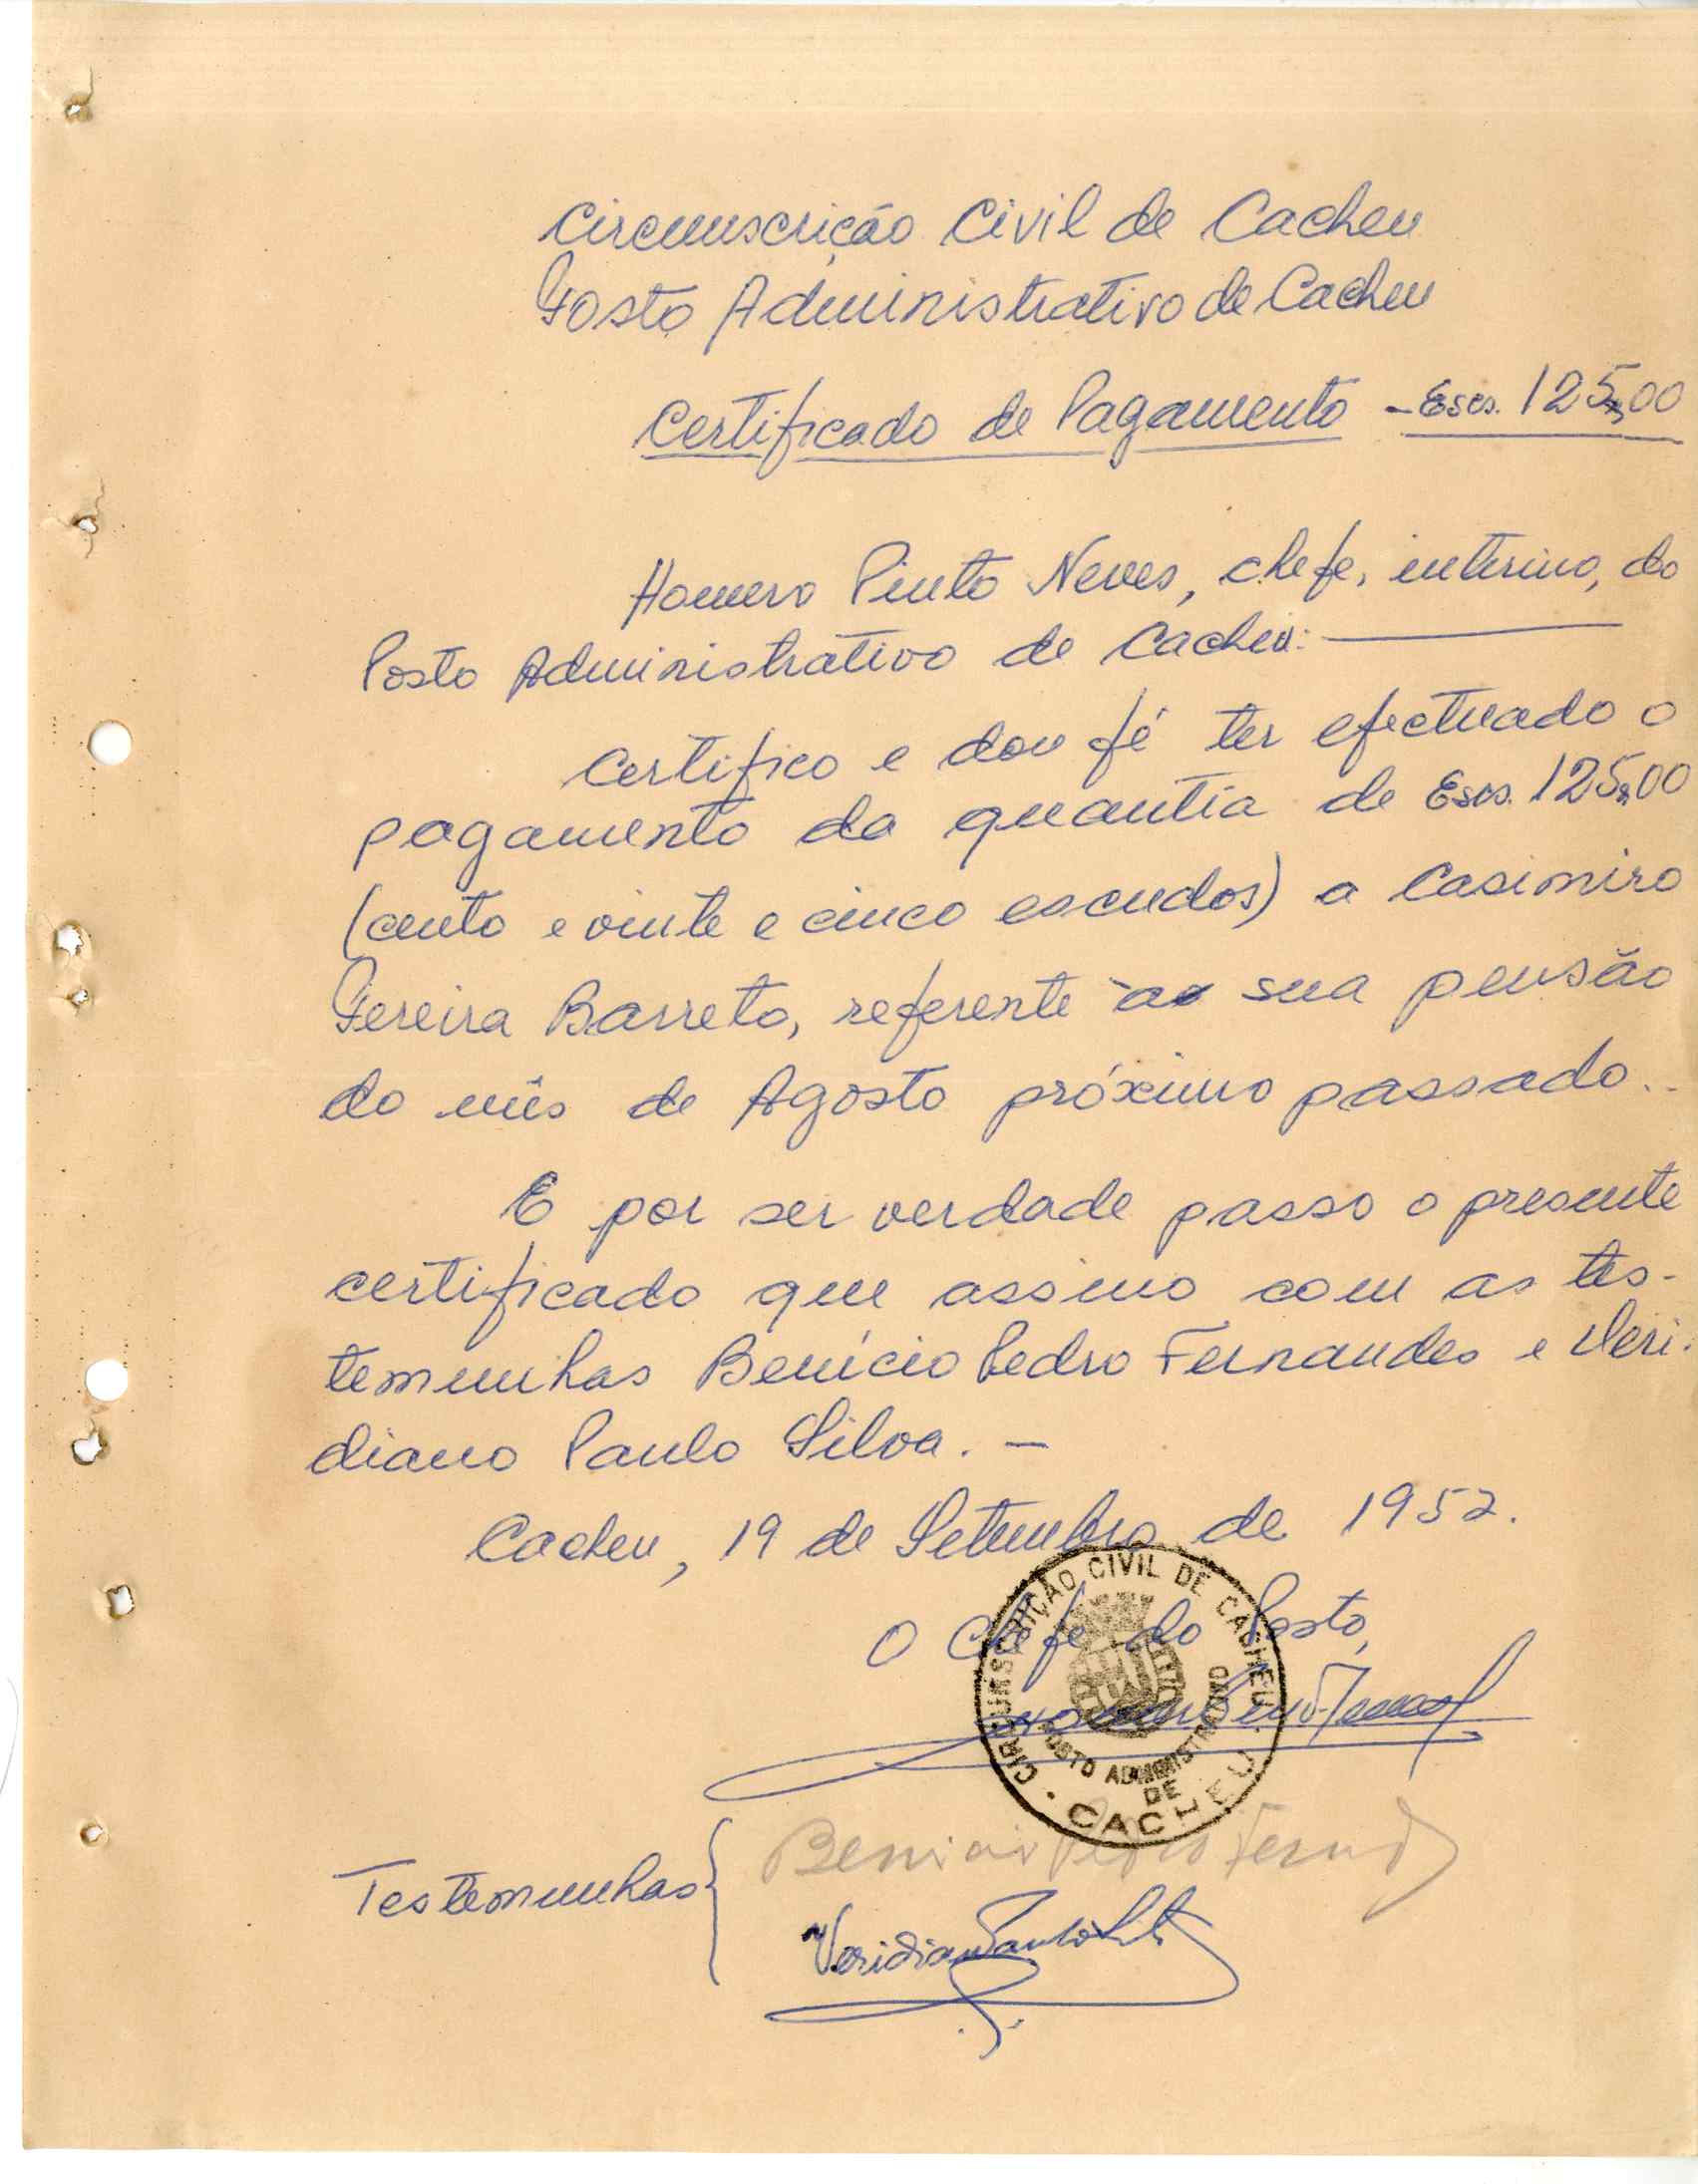 Circunscrição Civil de Cacheu
Posto Administrativo de Cacheu
Certificado de Pagamento - Escs. 125$00
Homero Pinto Neves, chefe, interino, do
Posto Administrativo de Cacheu:
Certifico e dou fé ter efectuado o
pagamento da quantia de Escs. 125$00
(cento e vinte e cinco escudos) a Casimiro
Pereira Barreto, referente à sua pensão
do mês de Agosto próximo passado..
E por ser verdade passo o presente
certificado que assino com as tes-
temunhas Benício Pedro Fernandes e Veri-
diano Paulo Silva. -
Cacheu, 19 de Setembro de 1952.
O Chefe do Posto,
CIRCUNSCRIÇÃO CIVIL DE CACHEU
POSTO ADMINISTRATIVO
DE
CACHEU
Testemunhas
Benicio Pedro Fernd
Veridiano Paulo Silva